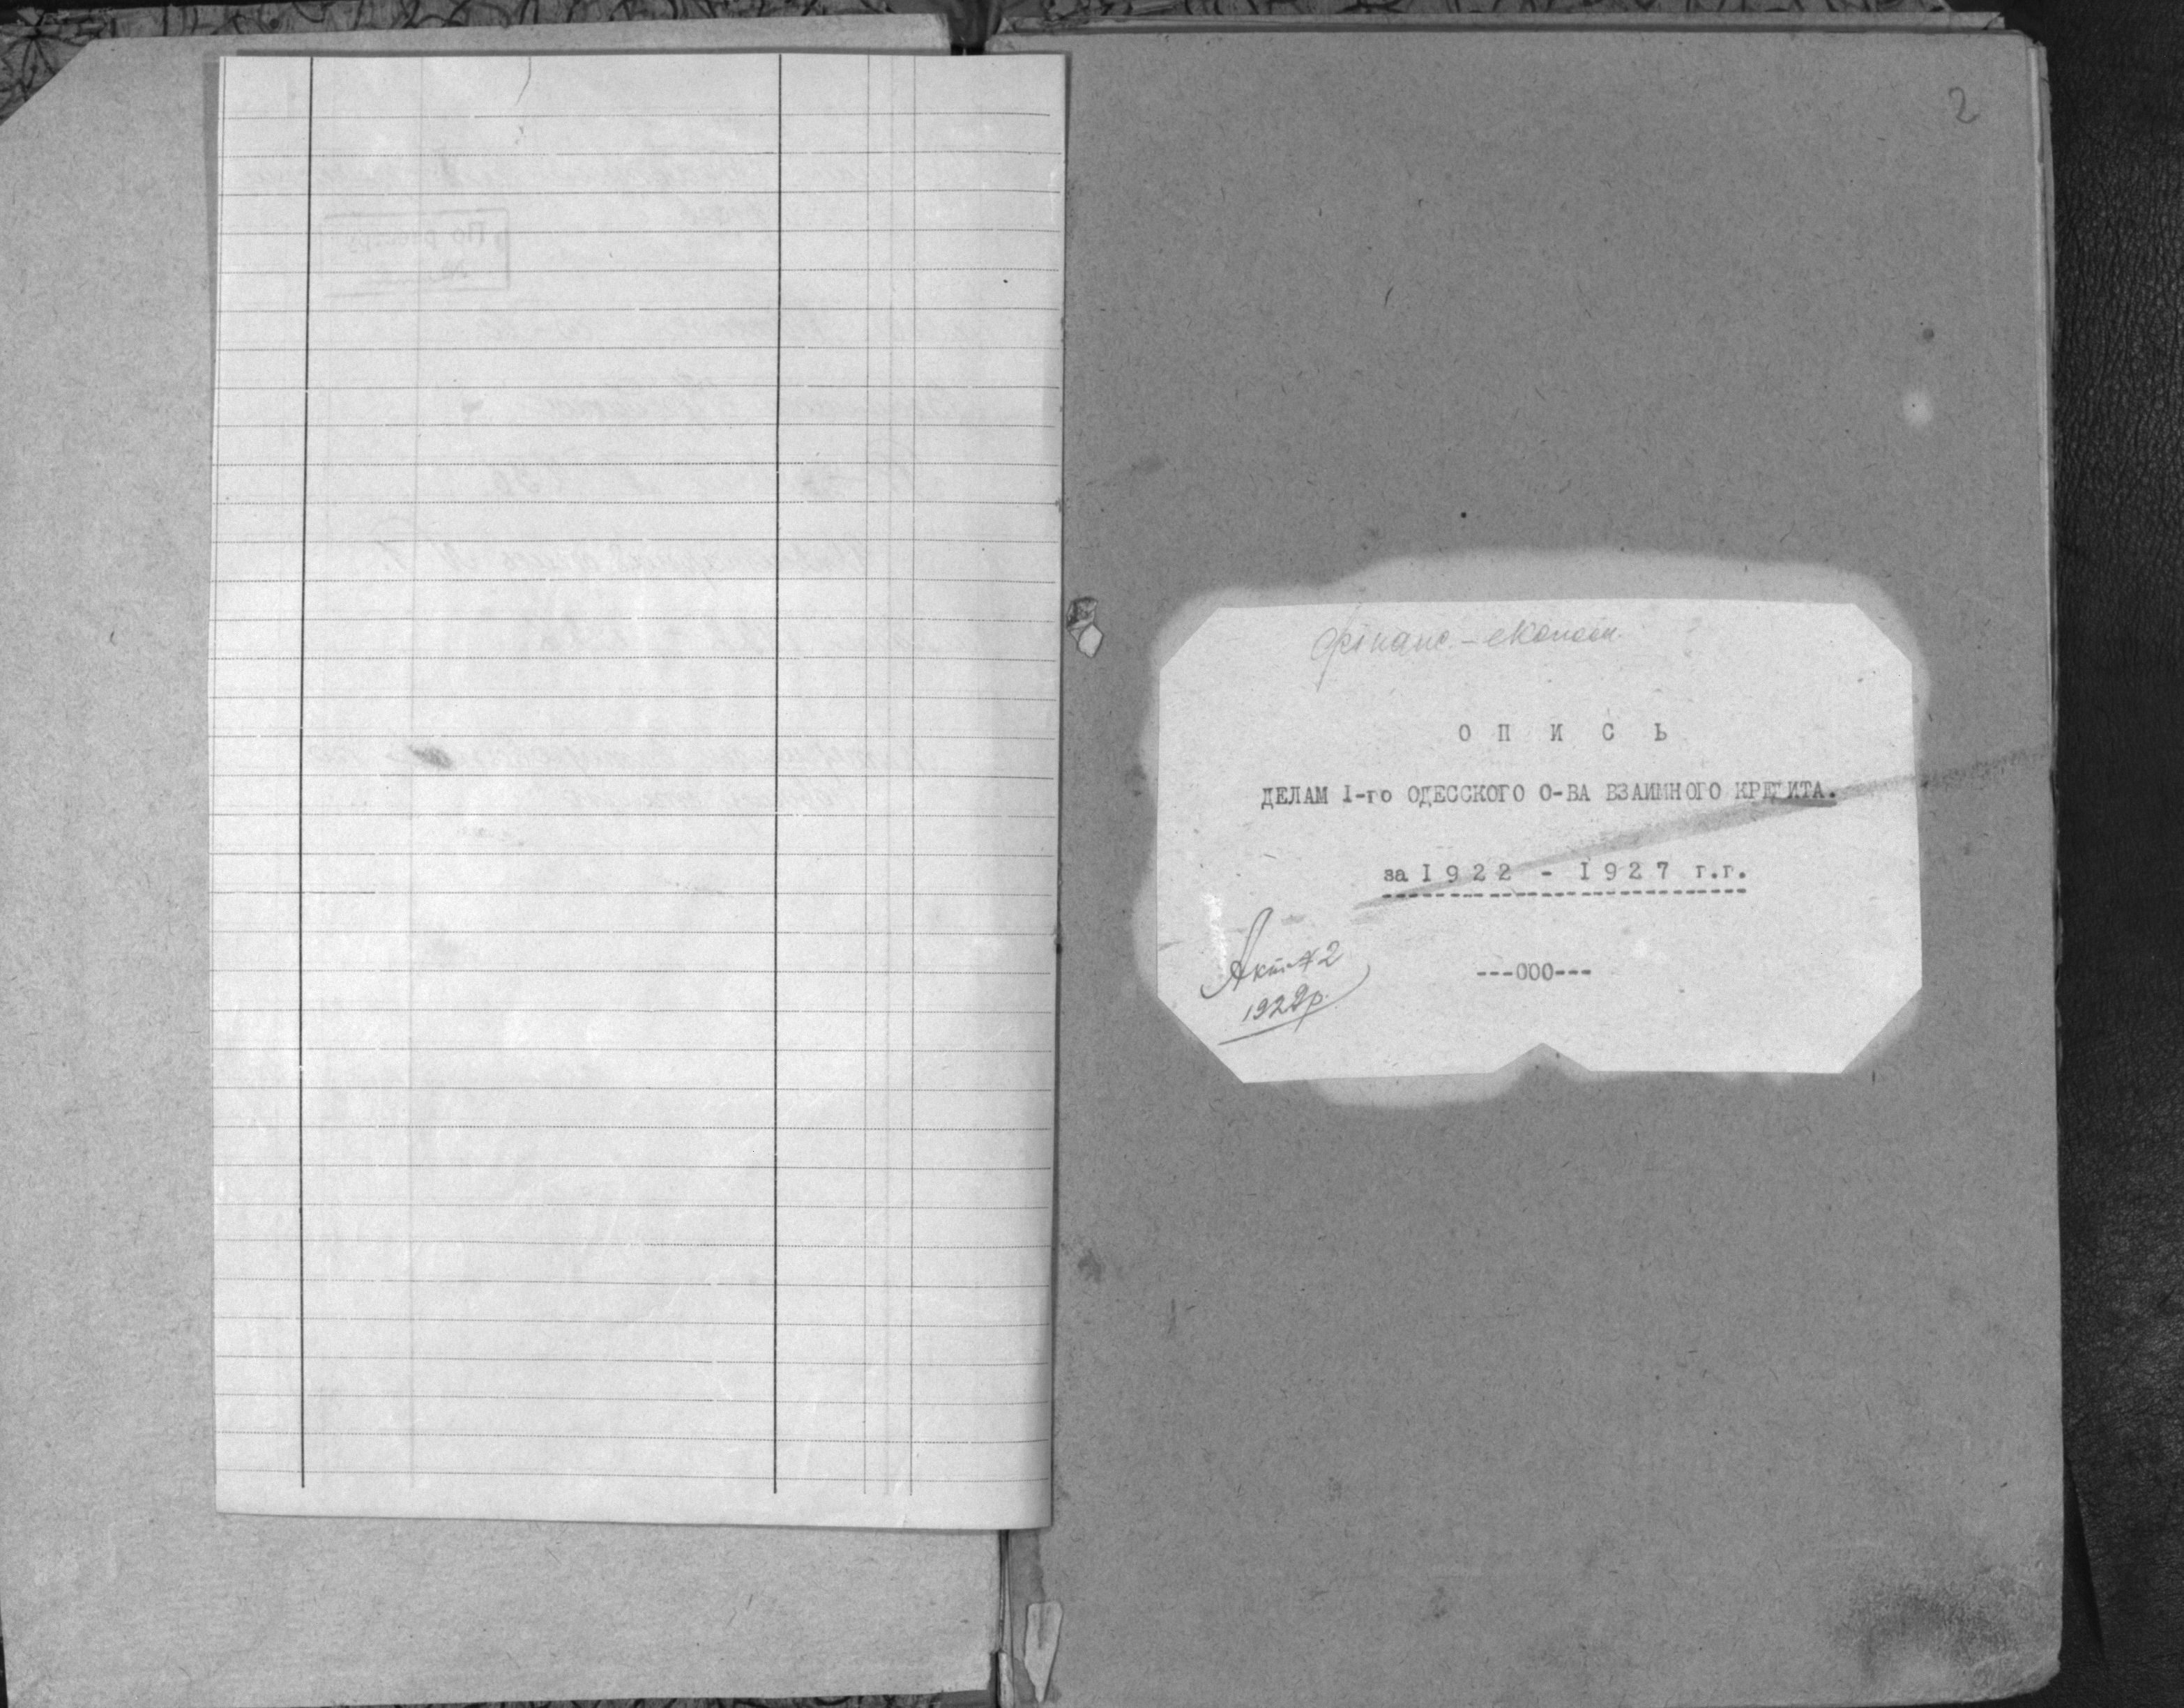 2
фінанс.-економ.
О П И С Ь
ДЕЛАМ I-го ОДЕССКОГО О-ВА ВЗАИМНОГО КРЕДИТА.
за I 9 2 2 - I 9 2 7 г.г.
Акт №2
1929р.
---ООО---